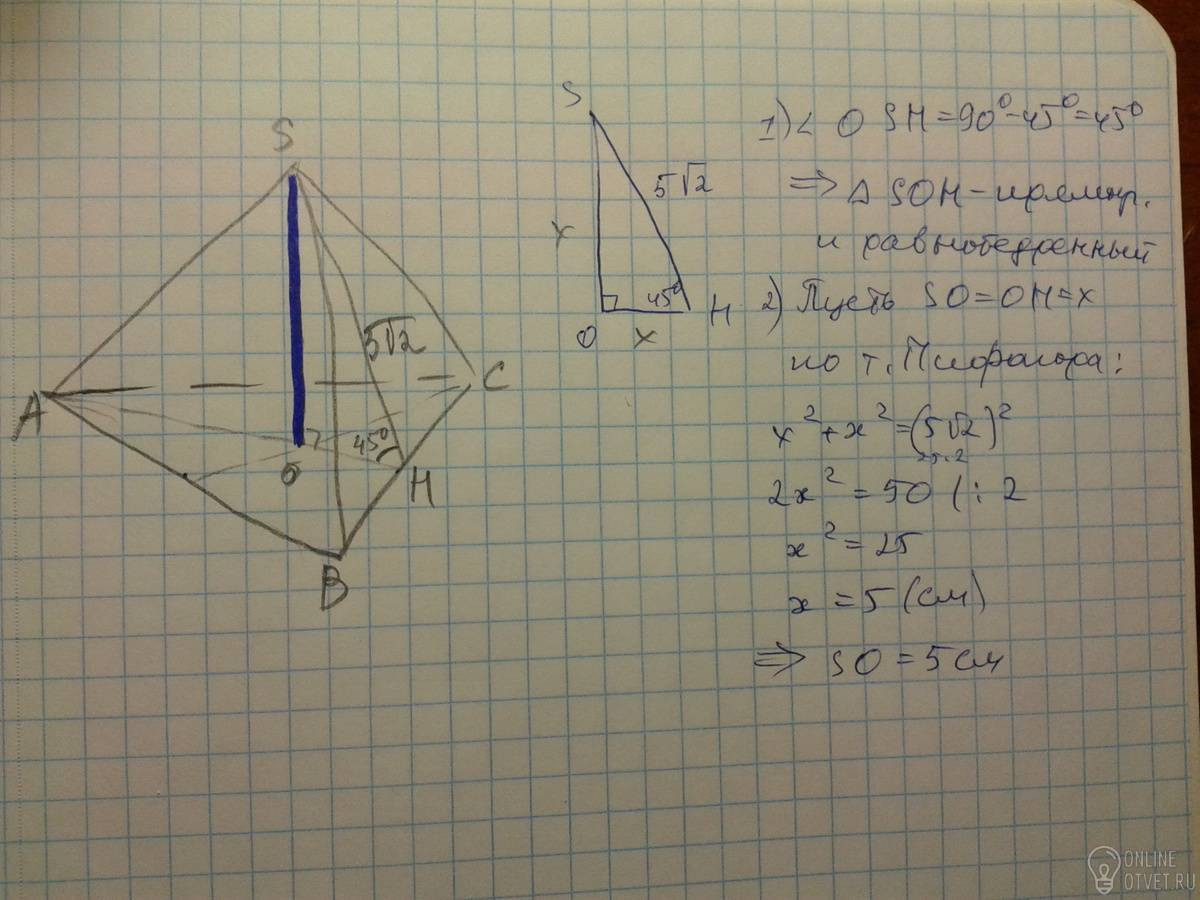 S
A
B
C
O
H
5√2
45°
S
x
5√2
45°
O
x
H
1) ∠ OSH = 90° - 45° = 45°
⇒ Δ SOH - прямоуг.
и равнобедренный
2) Пусть SO = OH = x
по т. Пифагора:
x² + x² = (5√2)²
25·2
2x² = 50 | : 2
x² = 25
x = 5 (см)
⇒ SO = 5 см
ONLINE
OTVET.RU